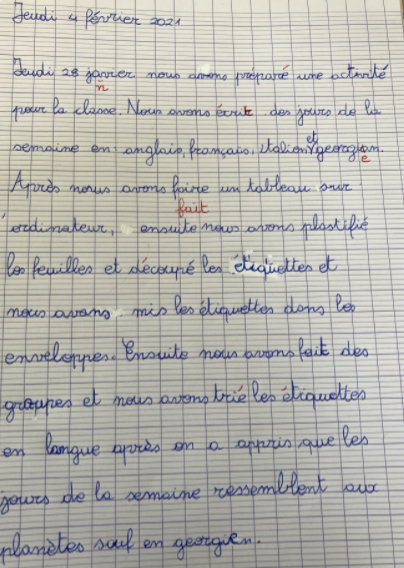 Jeudi 4 février 2021
Jeudi 28 janvier nous avons préparé une activité
n
pour la classe. Nous avons écrit des jours de la
et
semaine en anglais, français, italien georgien.
e
Après nous avons faire un tableau sur
fait
ordinateur, ensuite nous avons plastifié
les feuilles et découpé les étiquettes et
nous avons mis les étiquettes dans les
enveloppes. Ensuite nous avons fait des
groupes et nous avons trié les étiquettes
en langue après on a appris que les
jours de la semaine ressemblent aux
planètes sauf en georgien.